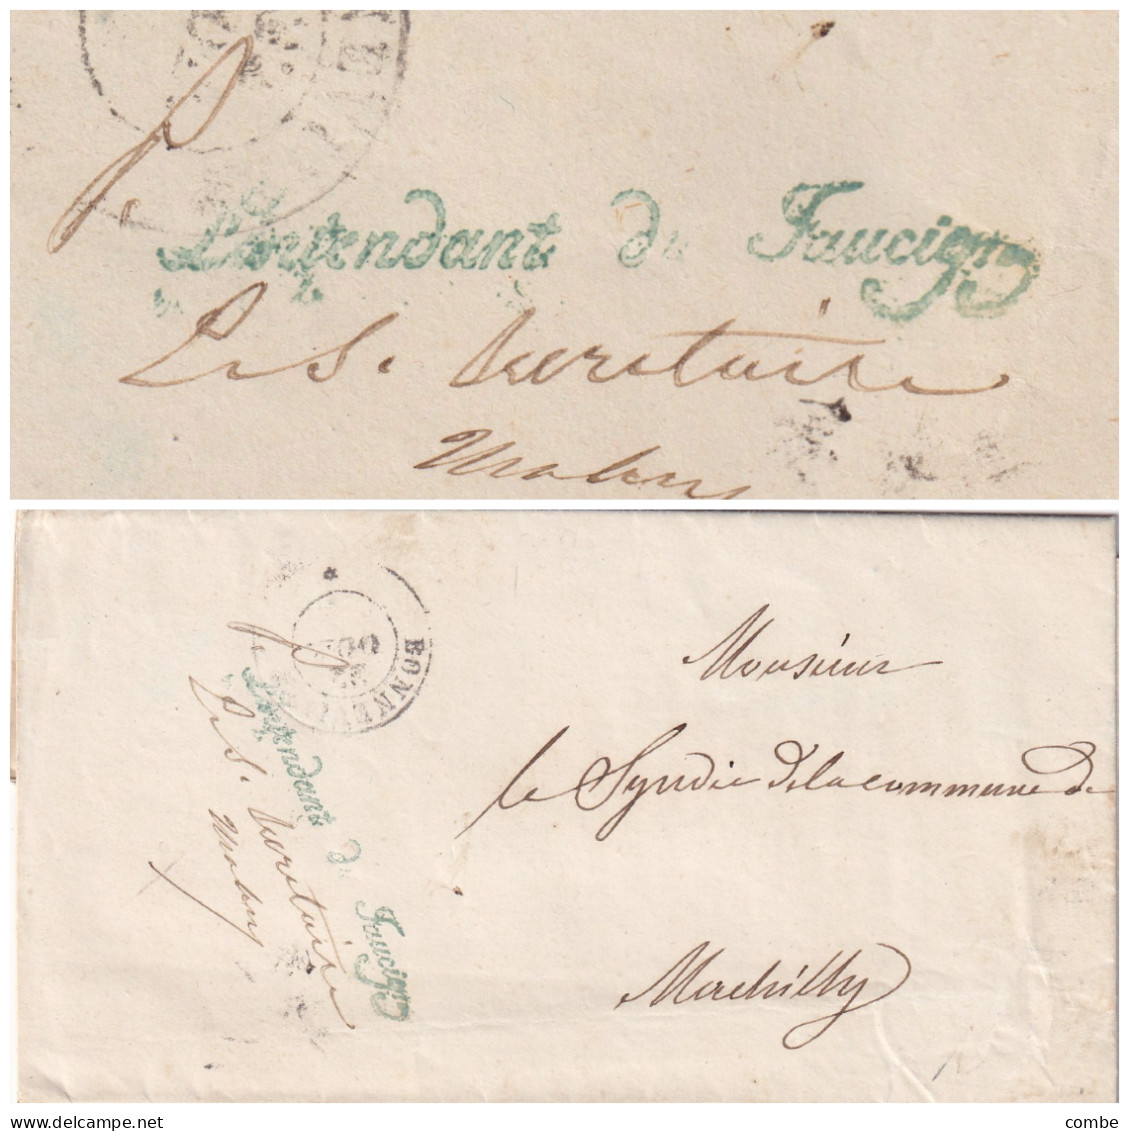 P.
L'intendant du Faucigny
Le S. Secretaire
BONNEVI
P.
L'intendant du Faucigny
Le S. Secretaire
Monsieur
le Syndic de la commune de
Machilly
www.delcampe.net
combe